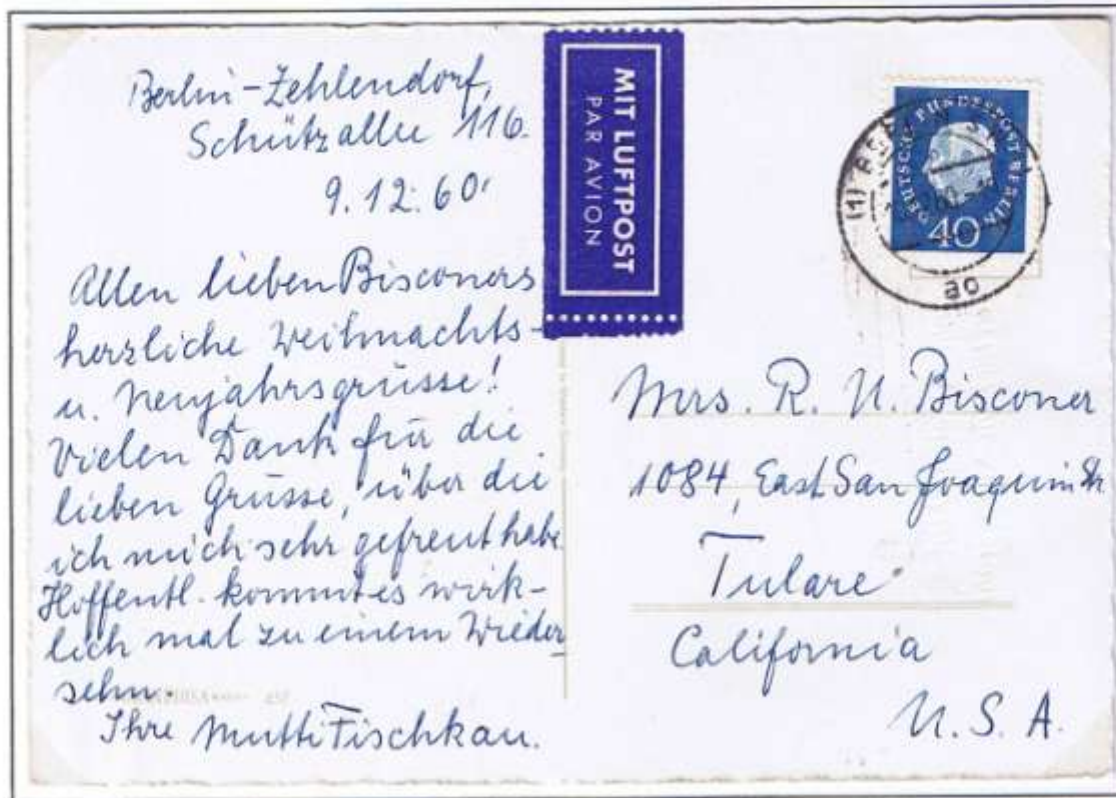 Berlin-Zehlendorf,
Schützallee 116.
9.12.60.
Allen lieben Bisconers
herzliche Weihnachts-
u. Neujahrsgrüsse!
Vielen Dank für die
lieben Grüsse, über die
ich mich sehr gefreut habe.
Hoffentl. kommt es wirk-
lich mal zu einem Wieder-
sehn.
Ihre Mutti Fischkau.
MIT LUFTPOST
PAR AVION
DEUTSCHE BUNDESPOST BERLIN
40
(1) BERLIN
ao
Mrs. R. N. Bisconer
1084, East San Joaquin St.
Tulare
California
U. S. A.